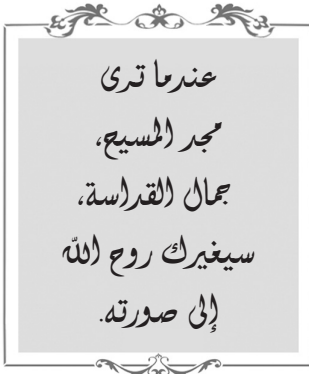 عندما ترى
مجد المسيح،
جمال القداسة،
سيغيرك روح الله
إلى صورته.